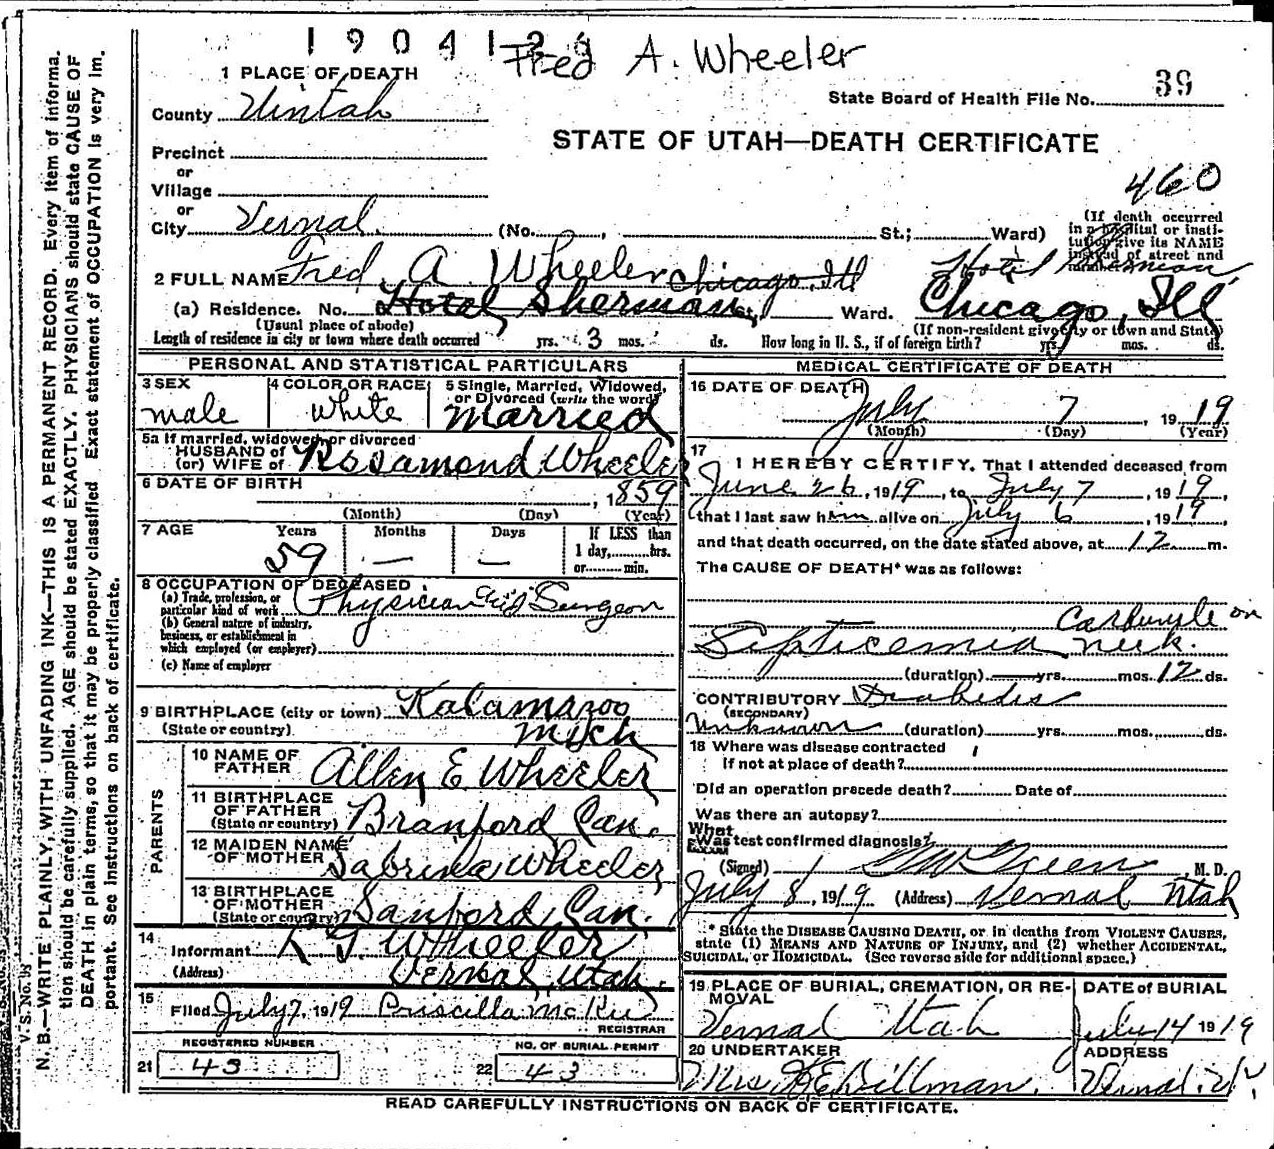 1904126
Fred A. Wheeler
1 PLACE OF DEATH
39
State Board of Health File No.
County Uintah
STATE OF UTAH—DEATH CERTIFICATE
Precinct
or
Village
460
or
City Vernal (No. , St.; Ward)
(If death occurred in a hospital or institution give its NAME instead of street and number)
2 FULL NAME Fred A Wheeler Chicago, Ill Hotel Sherman
(a) Residence. No. Hotel Sherman, St., Ward. Chicago, Ill
(Usual place of abode) (If non-resident give city or town and State)
Length of residence in city or town where death occurred yrs. 3 mos. ds. How long in U. S., if of foreign birth? yrs. mos. ds.
PERSONAL AND STATISTICAL PARTICULARS
3 SEX
male
4 COLOR OR RACE
White
5 Single, Married, Widowed,
or Divorced (write the word)
Married
5a If married, widowed, or divorced
HUSBAND of
(or) WIFE of Rosamond Wheeler
6 DATE OF BIRTH
, 1859
(Month) (Day) (Year)
7 AGE Years Months Days If LESS than
1 day,.....hrs.
or.....min.
59 — —
8 OCCUPATION OF DECEASED
(a) Trade, profession, or
particular kind of work Physician and Surgeon
(b) General nature of industry,
business, or establishment in
which employed (or employer)
(c) Name of employer
9 BIRTHPLACE (city or town) Kalamazoo
(State or country) Mich
PARENTS
10 NAME OF
FATHER Allen E Wheeler
11 BIRTHPLACE
OF FATHER
(State or country) Branford Can.
12 MAIDEN NAME
OF MOTHER Sabrina Wheeler
13 BIRTHPLACE
OF MOTHER
(State or country) Sanford, Can.
14
Informant R T Wheeler
(Address) Vernal, Utah.
15
Filed July 7, 1919 Priscilla McKee
REGISTRAR
REGISTERED NUMBER NO. OF BURIAL PERMIT
21 43 22 43
MEDICAL CERTIFICATE OF DEATH
16 DATE OF DEATH
July 7, 1919
(Month) (Day) (Year)
17
I HEREBY CERTIFY, That I attended deceased from
June 26, 1919, to July 7, 1919,
that I last saw him alive on July 6, 1919,
and that death occurred, on the date stated above, at 12 m.
The CAUSE OF DEATH* was as follows:
Carbuncle on
Septicemia neck.
(duration) yrs. mos. 12 ds.
CONTRIBUTORY Diabetis
(SECONDARY)
unknown (duration) yrs. mos. ds.
18 Where was disease contracted
if not at place of death?
Did an operation precede death? Date of
Was there an autopsy?
What
Was test confirmed diagnosis?
(Signed) Green M. D.
July 8, 1919 (Address) Vernal Utah
* State the DISEASE CAUSING DEATH, or in deaths from VIOLENT CAUSES,
state (1) MEANS AND NATURE OF INJURY, and (2) whether ACCIDENTAL,
SUICIDAL, or HOMICIDAL. (See reverse side for additional space.)
19 PLACE OF BURIAL, CREMATION, OR RE-
MOVAL
Vernal Utah
DATE of BURIAL
July 14 1919
20 UNDERTAKER
Mrs Dillman.
ADDRESS
Vernal, Ut.
READ CAREFULLY INSTRUCTIONS ON BACK OF CERTIFICATE.
V. S. No.
N. B.—WRITE PLAINLY, WITH UNFADING INK—THIS IS A PERMANENT RECORD. Every item of informa-
tion should be carefully supplied. AGE should be stated EXACTLY. PHYSICIANS should state CAUSE OF
DEATH in plain terms, so that it may be properly classified. Exact statement of OCCUPATION is very im-
portant. See instructions on back of certificate.